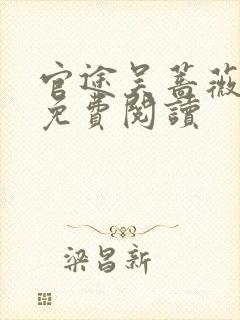 官途吴蔷薇
免費閱讀
梁昌新